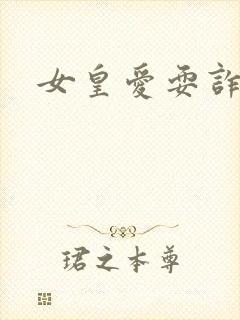 女皇愛耍詐
珺之本尊